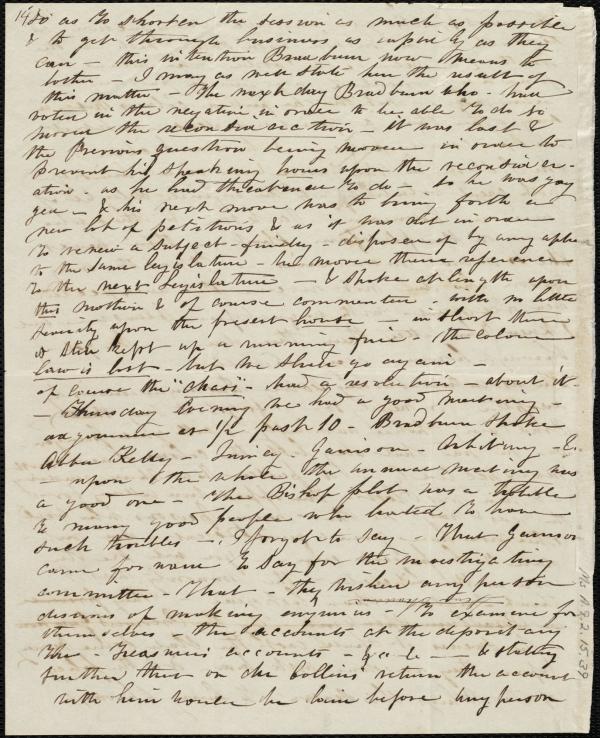 so as to shorten the session as much as possible
& to get through business as rapidly as they
can - this intention Bradburn now means to
bother - I may as well state here the result of
this matter - The next day Bradburn who had
voted in the negative in order to be able to do so
moved the reconsideration - it was lost &
the Previous question being moved in order to
prevent his speaking hours upon the reconsider-
ation - as he had threatened to do - so he was gag
ged - & his next move was to bring forth a
new lot of petitions & as it was not in order
to renew a subject - finally - disposed of by any
to the same legislature - he moved their reference
to the next Legislature - & spoke at length upon
this motion & of course commented with no little
severity upon the present house - in short there
is still kept up a running fire - the colour
Law is lost - but we shall go again -
of course the "chasi" - had a resolution - about it
- Thursday Evening we had a good meeting -
adjourned at 1/2 past 10 - Bradburn spoke
Abba Kelly - Garrison - Whiting - &
- upon the whole the annual meeting was
a good one - The Bishop plot was a trouble
to many good people who hated to have
such troubles - I forgot to say - That Garrison
came for name to say for the investigating
committee - That - they wished any person
desirous of making enquiries - to examine for
themselves - the accounts at the depository
The - Treasurers accounts - &c & - & stating
further that on Mr Collins' return the account
with him would be laid before any person
Ms. A.9.2.15.39